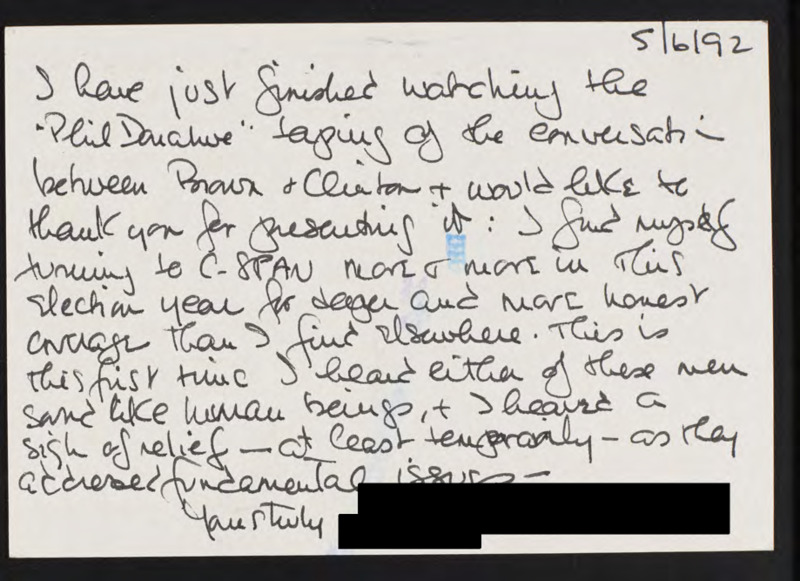 5/6/92
I have just finished watching the
"Phil Donahue" taping of the conversati-
between Brown + Clinton + would like to
thank you for presenting it: I find myself
turning to C-SPAN more + more in this
election year for deeper and more honest
coverage than I find elsewhere. This is
this first time I heard either of these men
sound like human beings, + I heaved a
sigh of relief — at least temporarily — as they
addressed fundamental issues —
Yours truly